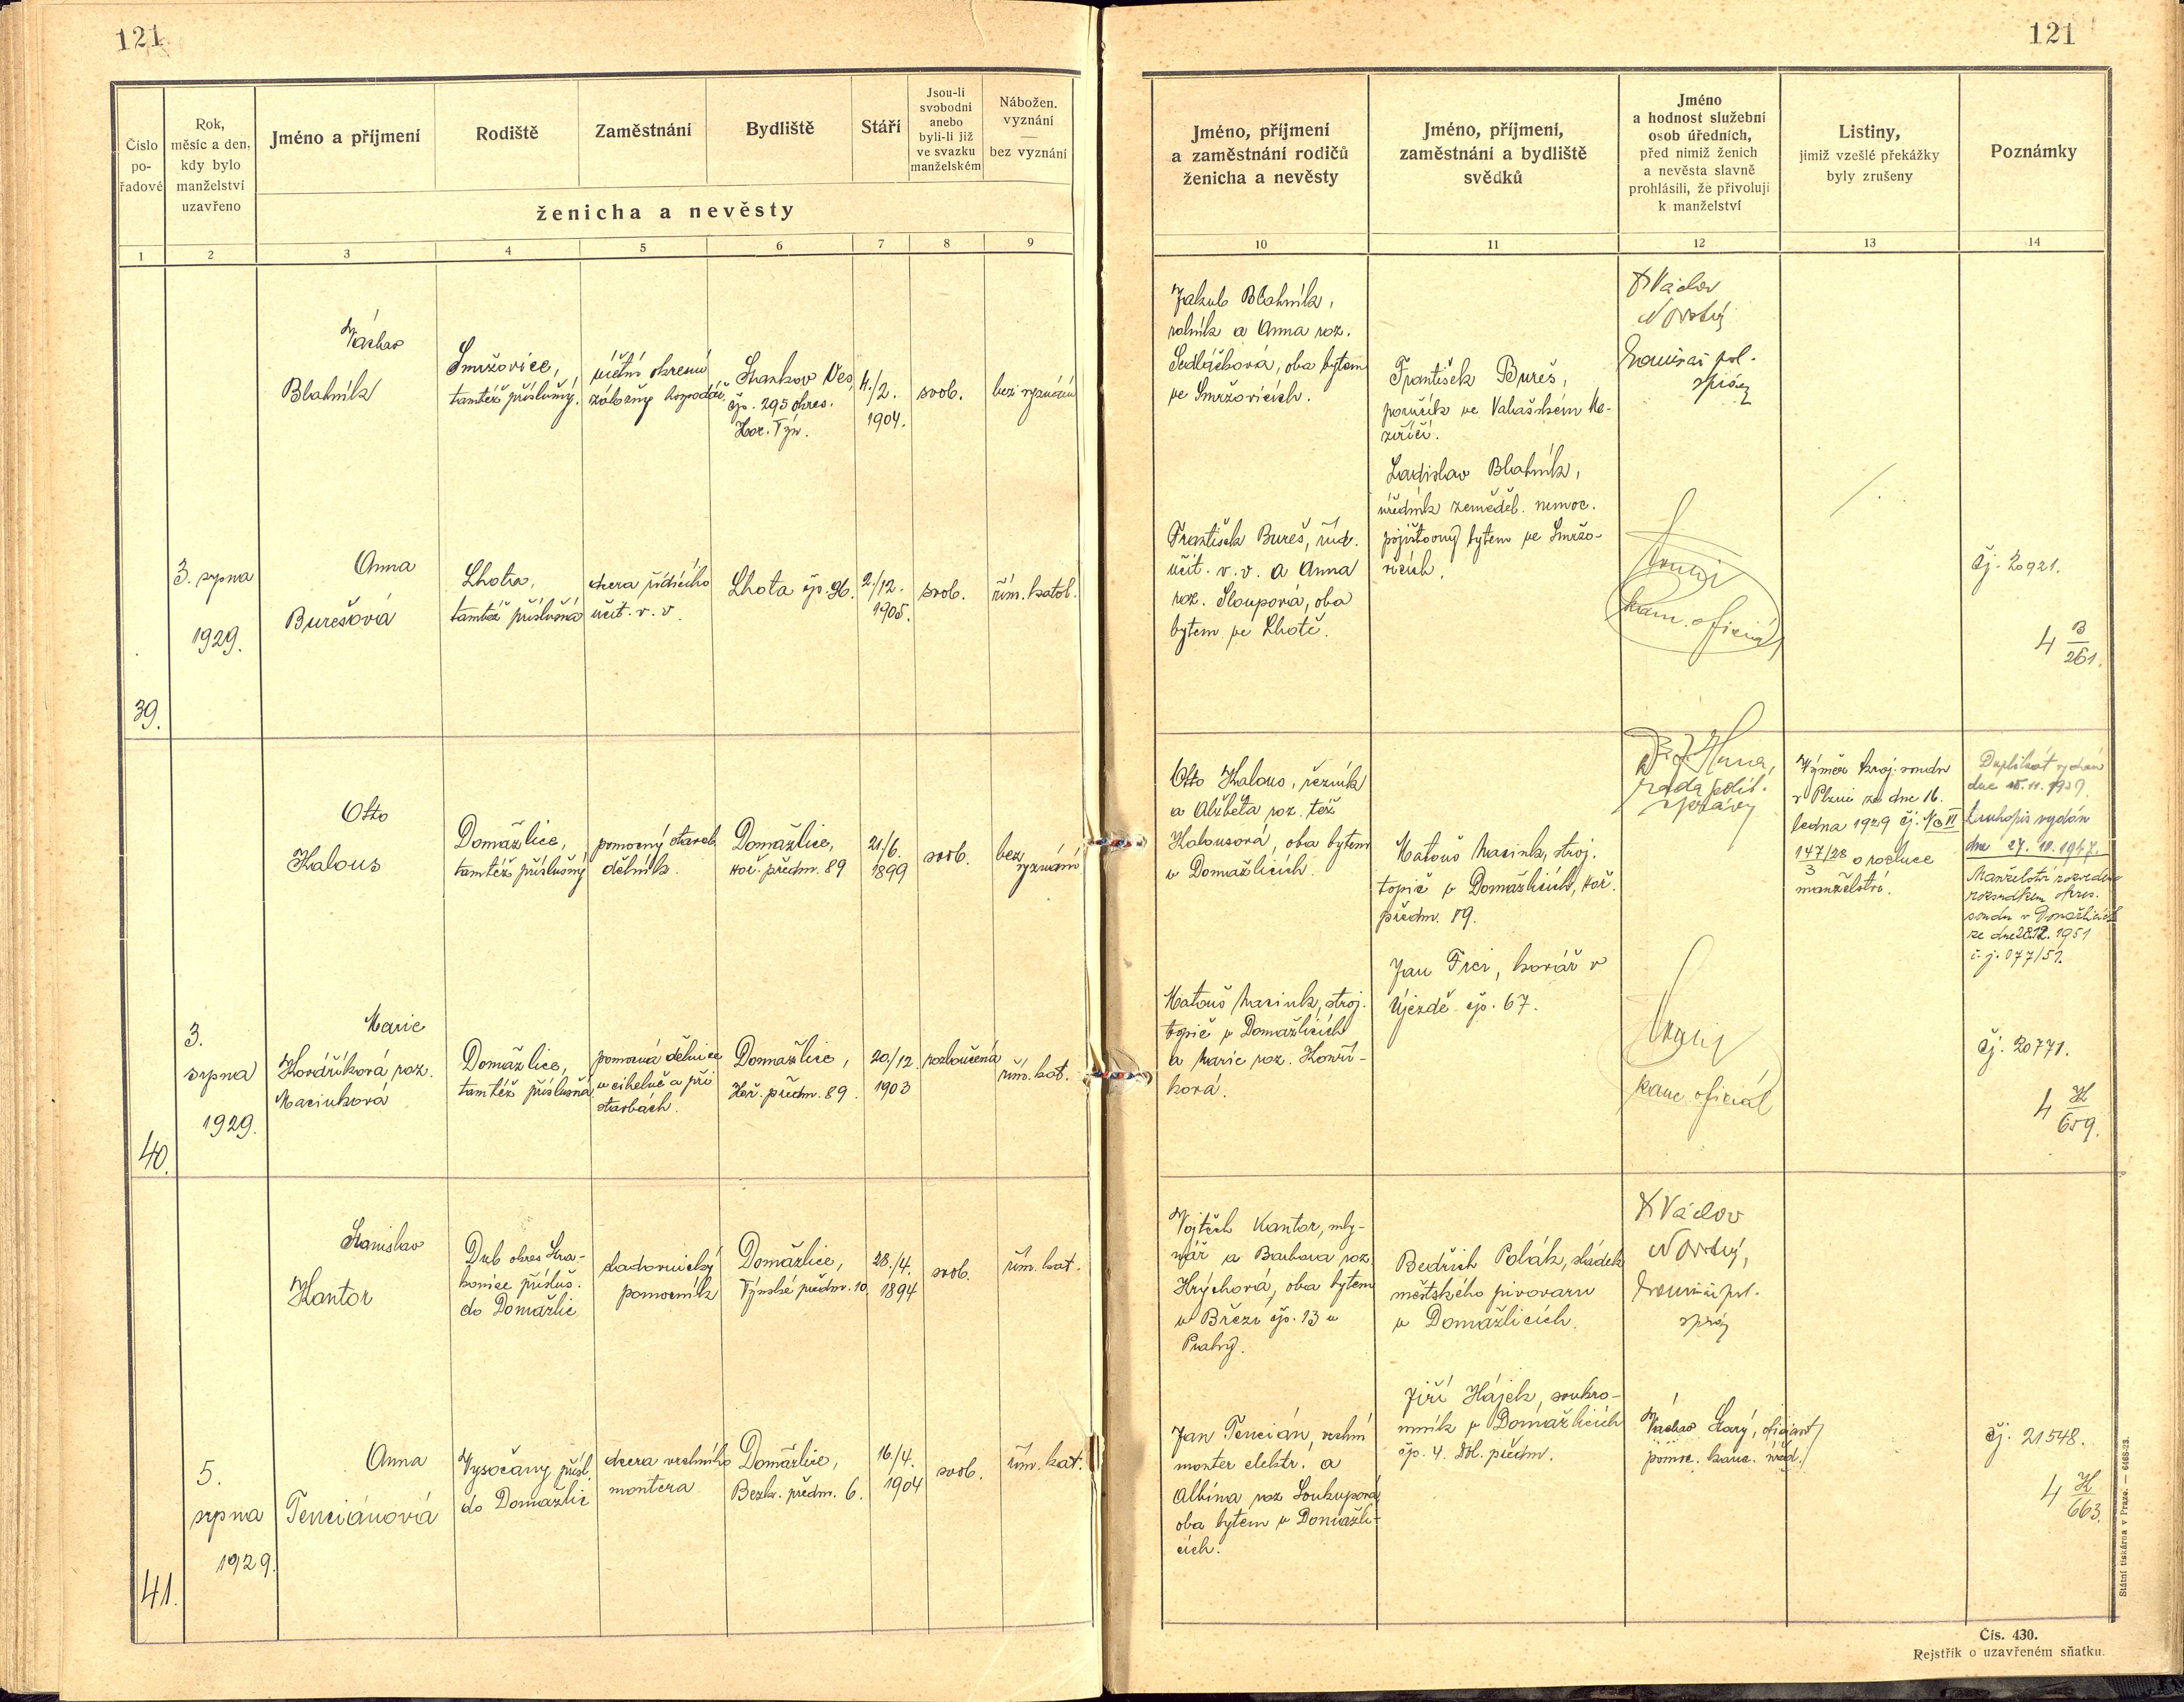 121
121
Číslo
po-
řadové
Rok,
měsíc a den,
kdy bylo
manželství
uzavřeno
Jméno a příjmení
Rodiště
Zaměstnání
Bydliště
Stáří
Jsou-li
svobodni
anebo
byli-li již
ve svazku
manželském
Nábožen.
vyznání
—
bez vyznání
ženicha a nevěsty
Jméno, příjmení
a zaměstnání rodičů
ženicha a nevěsty
Jméno, příjmení,
zaměstnání a bydliště
svědků
Jméno
a hodnost služební
osob úředních,
před nimiž ženich
a nevěsta slavně
prohlásili, že přivolují
k manželství
Listiny,
jimiž vzešlé překážky
byly zrušeny
Poznámky
1
2
3
4
5
6
7
8
9
10
11
12
13
14
39.
3. srpna
1929.
Václav
Blahník
Smržovice,
tamtéž příslušný.
účetní okresní
záložny hospodář.
Stankov Ves,
čp. 295 okres.
Hor. Týn.
4./2.
1904.
svob.
bez vyznání
Anna
Burešová
Lhota,
tamtéž příslušná
dcera řídícího
učit. v. v.
Lhota čp. 96.
2./12.
1905.
svob.
řím. katol.
Jakub Blahník,
rolník a Anna roz.
Sedláčková, oba bytem
ve Smržovicích.
František Bureš, říd.
učit. v. v. a Anna
roz. Sloupová, oba
bytem ve Lhotě.
František Bureš,
poručík ve Valašském Me-
zeříčí.
Ladislav Blahník,
úředník zeměděl. nemoc.
pojišťovny bytem ve Smržo-
vicích.
Dr Václav
Novotný
komisař pol.
správy
kanc. oficiál
čj. 20921.
4 B/261.
40.
3.
srpna
1929.
Otto
Kalous
Domažlice,
tamtéž příslušný
pomocný staveb.
dělník.
Domažlice,
Hoř. předm. 89
21/6.
1899
svob.
bez
vyznání
Marie
Kovaříková roz.
Macinková
Domažlice,
tamtéž příslušná
pomocná dělnice
v cihelně a při
stavbách.
Domažlice,
Hoř. předm. 89.
20/12.
1903
rozloučená
řím. kat.
Otto Kalous, řezník
a Alžběta roz. též
Kalousová, oba bytem
v Domažlicích.
Matouš Macink, stroj.
topič v Domažlicích
a Marie roz. Konří-
ková.
Matouš Macink, stroj.
topič v Domažlicích, Hoř.
předm. 89.
Jan Frei, kovář v
Újezdě čp. 67.
rada polit.
správy
kanc. oficiál
Výměr kraj. soudu
v Plzni ze dne 16.
ledna 1929 čj. Nc VI
147/28
3
o rozluce
manželství.
Duplikát vydán
dne 15. 11. 1939.
Druhopis vydán
dne 27. 10. 1947.
Manželství rozvedeno
rozsudkem okres.
soudu v Domažlicích
ze dne 28.12. 1951
č. j. 077/51.
čj. 20771.
4 K/659.
41.
5.
srpna
1929.
Stanislav
Kantor
Dub okres Stra-
konice přísluš.
do Domažlic
sladovnický
pomocník
Domažlice,
Týnské předm. 10.
28./4.
1894
svob.
řím. kat.
Anna
Tenciánová
Vysočany přísl.
do Domažlic
dcera vrchního
montera
Domažlice,
Bezd. předm. 6.
16/4.
1904
svob.
řím. kat.
Vojtěch Kantor, mly-
nář a Barbora roz.
Hrychová, oba bytem
v Březi čp. 13 u
Prahy.
Jan Tencián, vrchní
monter elektr. a
Albína roz. Soukupová,
oba bytem v Domažli-
cích.
Bedřich Polák, sládek
městského pivovaru
v Domažlicích.
Jiří Hájek, soukro-
mník v Domažlicích
čp. 4. Dol. předm.
Dr Václav
Novotný,
komisař pol.
správy
Václav Starý, oficiant
pomoc. kanc. úřad.
čj. 21548.
4 K/663.
Státní tiskárna v Praze. — 6468-23.
Čís. 430.
Rejstřík o uzavřeném sňatku.